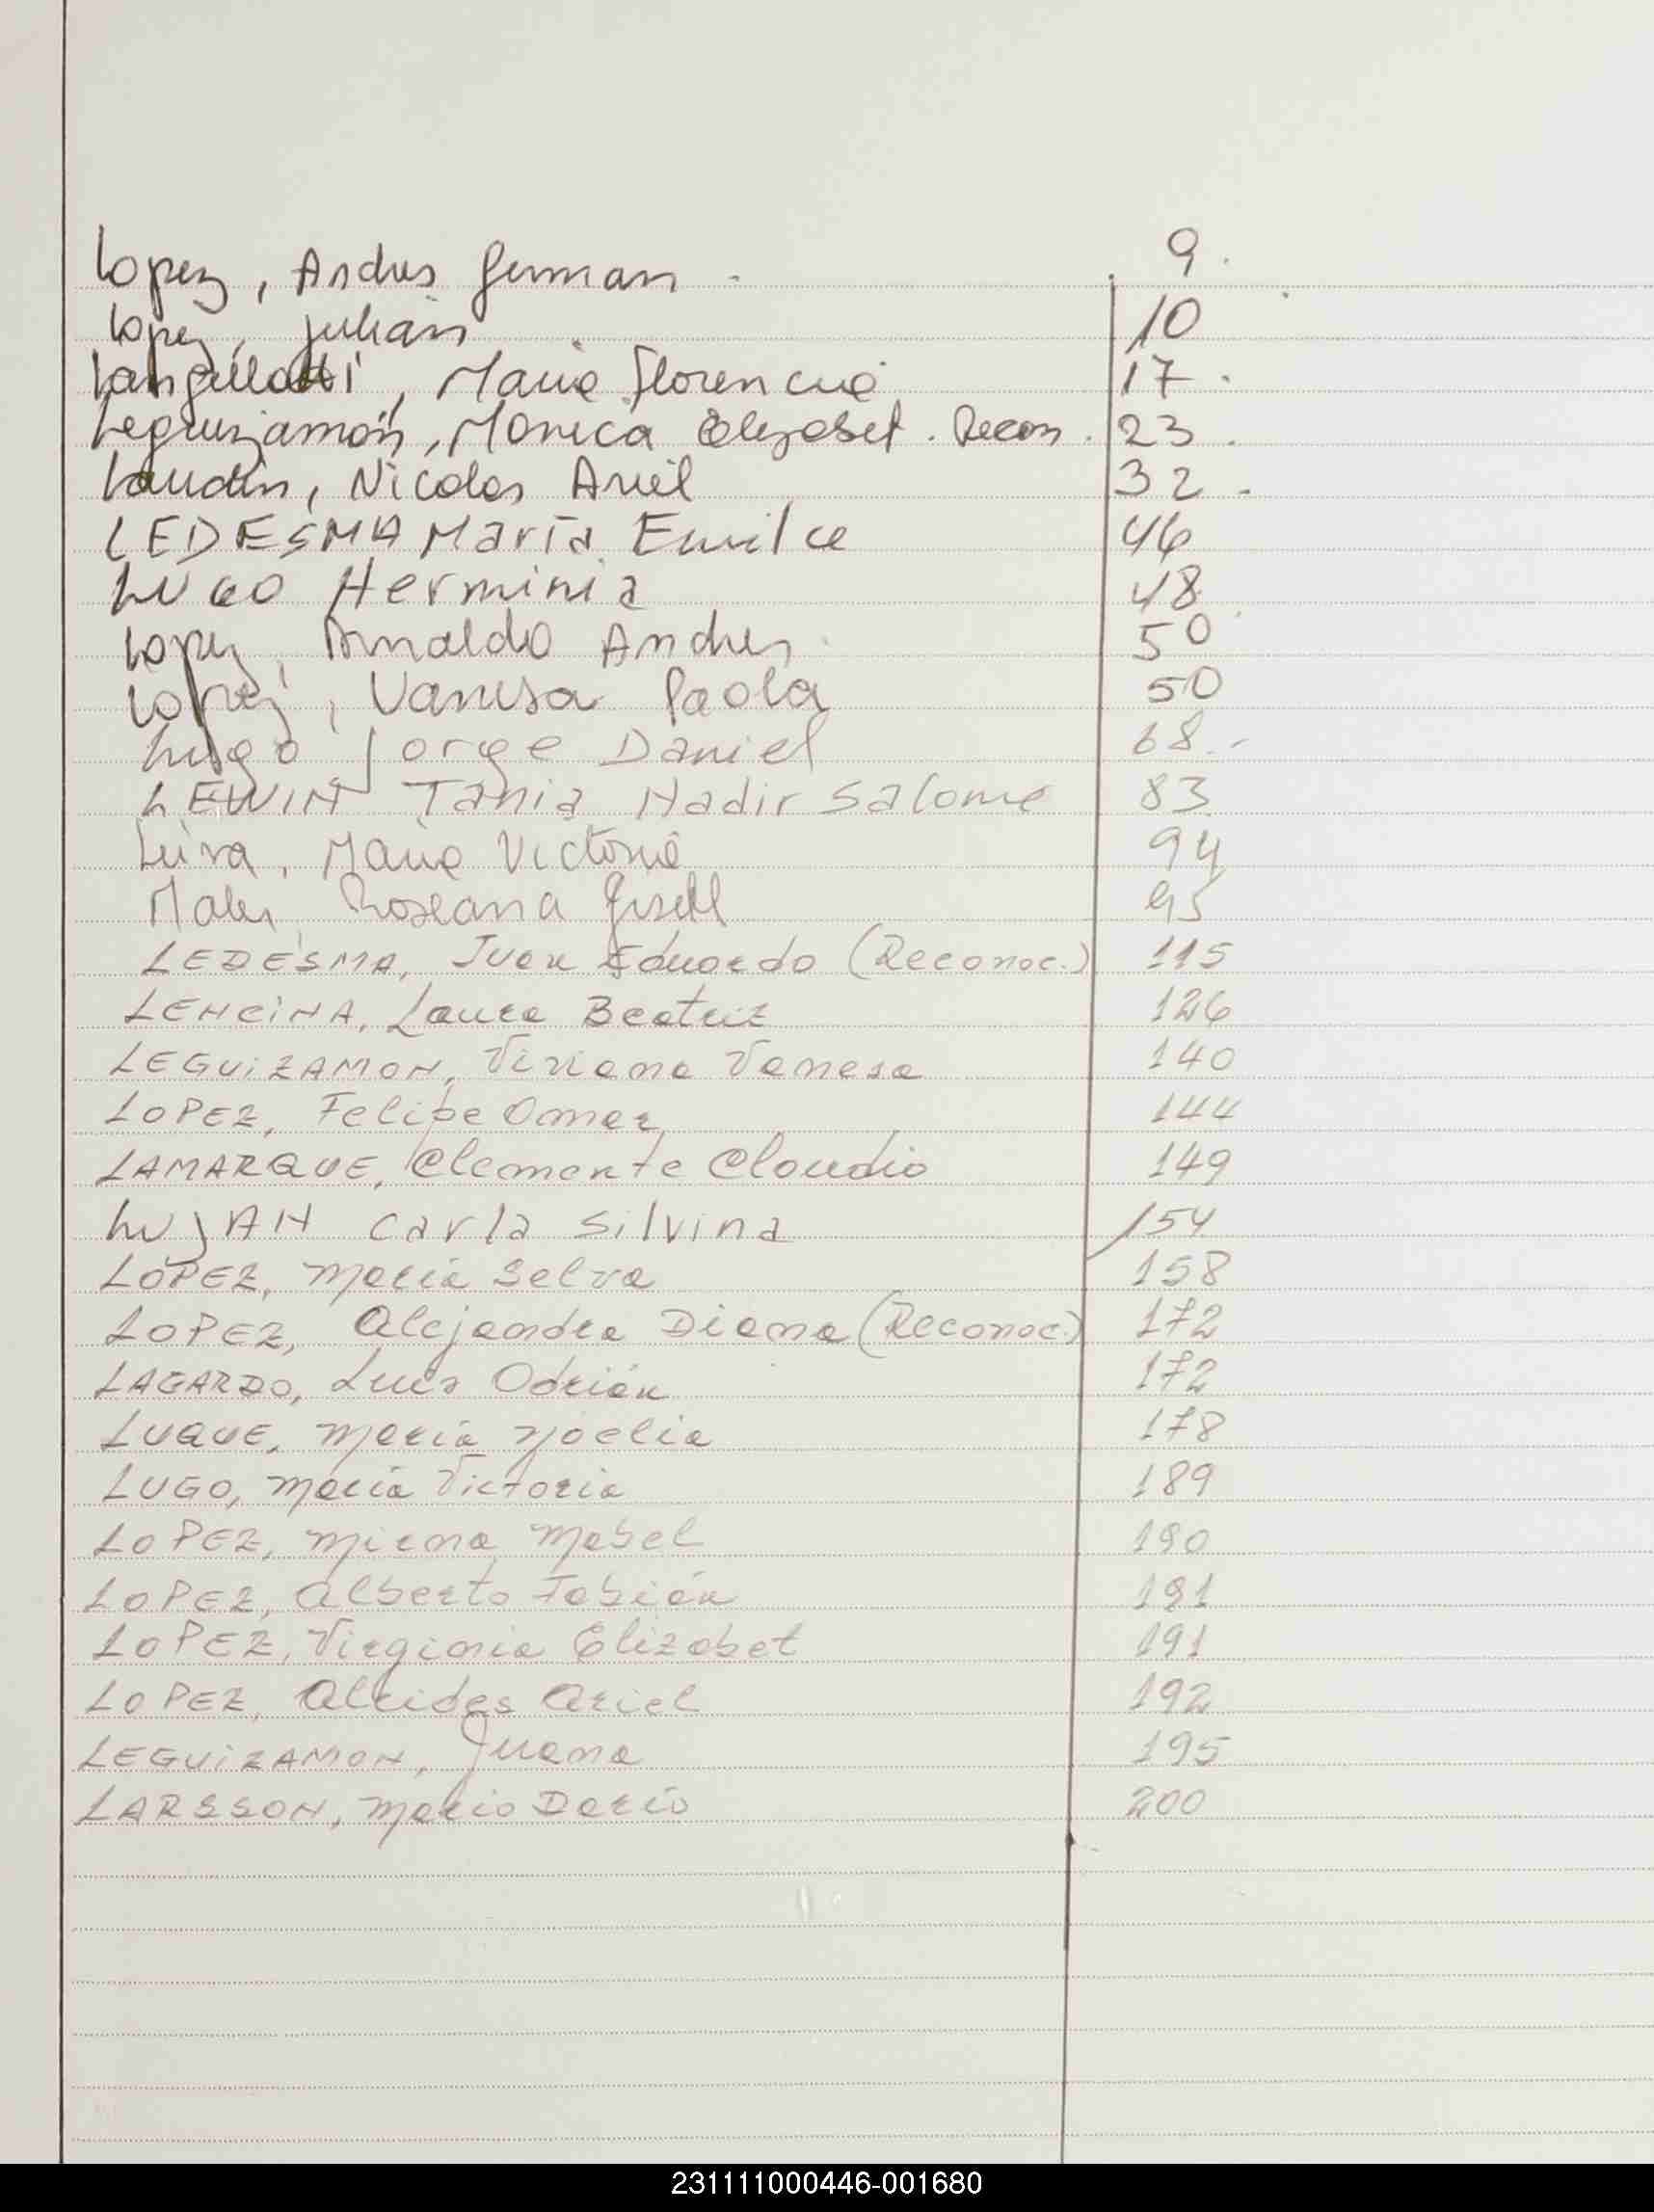 Lopez, Andres German 9.
Lopez, Julián 10
Langellotti, Maria Florencia 17.
Leguizamón, Monica Elizabet. Recon. 23.
Landin, Nicolas Ariel 32.
LEDESMA María Emilce 46
LUGO Herminia 48
Lopez, Arnaldo Andres 50
Lopez, Vanesa Paola 50
Lugo Jorge Daniel 68.-
LEWIN Tania Nadir Salome 83
Leiva, Maria Victoria 94
Roxana Gisell 95
LEDESMA, Juan Eduardo (Reconoc.) 115
LENCINA, Laura Beatriz 126
LEGUIZAMON, Viviana Vanesa 140
LOPEZ, Felipe Omar 144
LAMARQUE, Clemente Claudio 149
LUJAN Carla Silvina 154
LÓPEZ, María Selva 158
LOPEZ, Alejandra Diana (Reconoc.) 172
LAGARDO, Luis Adrián 172
LUQUE, María Noelia 178
LUGO, María Victoria 189
LOPEZ, Mirna Mabel 190
LOPEZ, Alberto Fabián 191
LOPEZ, Virginia Elizabet 191
LOPEZ, Alcides Ariel 192
LEGUIZAMON, Juana 195
LARSSON, Mario Darío 200
231111000446-001680